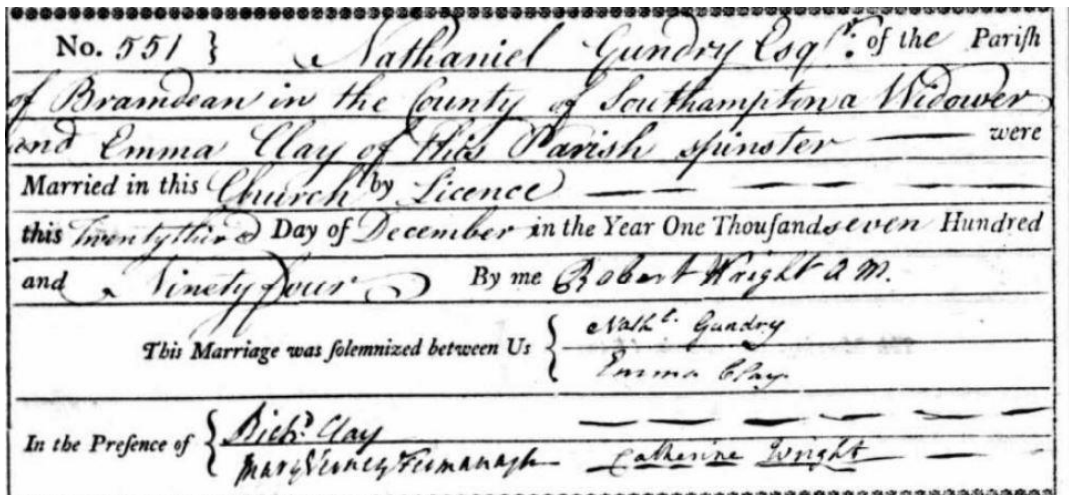 No. 551 } Nathaniel Gundry Esqr. of the Pariſh
of Bramdean in the County of Southampton a Widower
and Emma Clay of this Parish spinster — were
Married in this Church by Licence — — — — —
this Twentythird Day of December in the Year One Thouſand seven Hundred
and Ninety four By me Robert Wright A M.
This Marriage was ſolemnized between Us { Nathl. Gundry
Emma Clay
In the Preſence of { Richd. Clay — — — — —
Mary Verney Fermanagh Catherine Wright — —